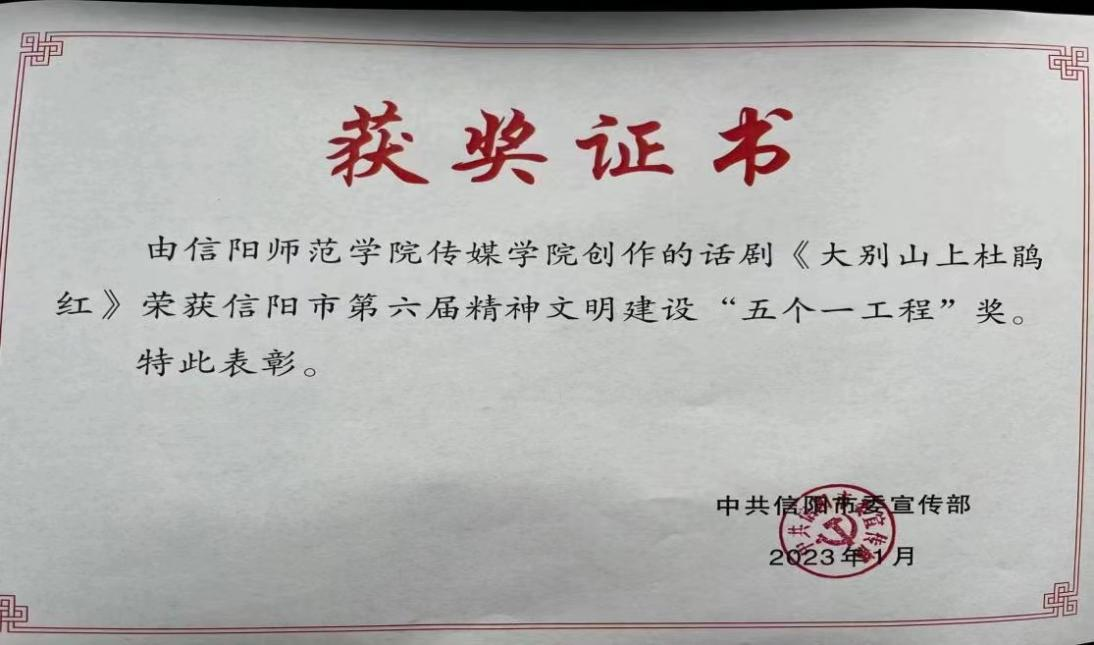 获奖证书
由信阳师范学院传媒学院创作的话剧《大别山上杜鹃
红》荣获信阳市第六届精神文明建设“五个一工程”奖。
特此表彰。
中共信阳市委宣传部
2023年1月
中共信阳市委宣传部